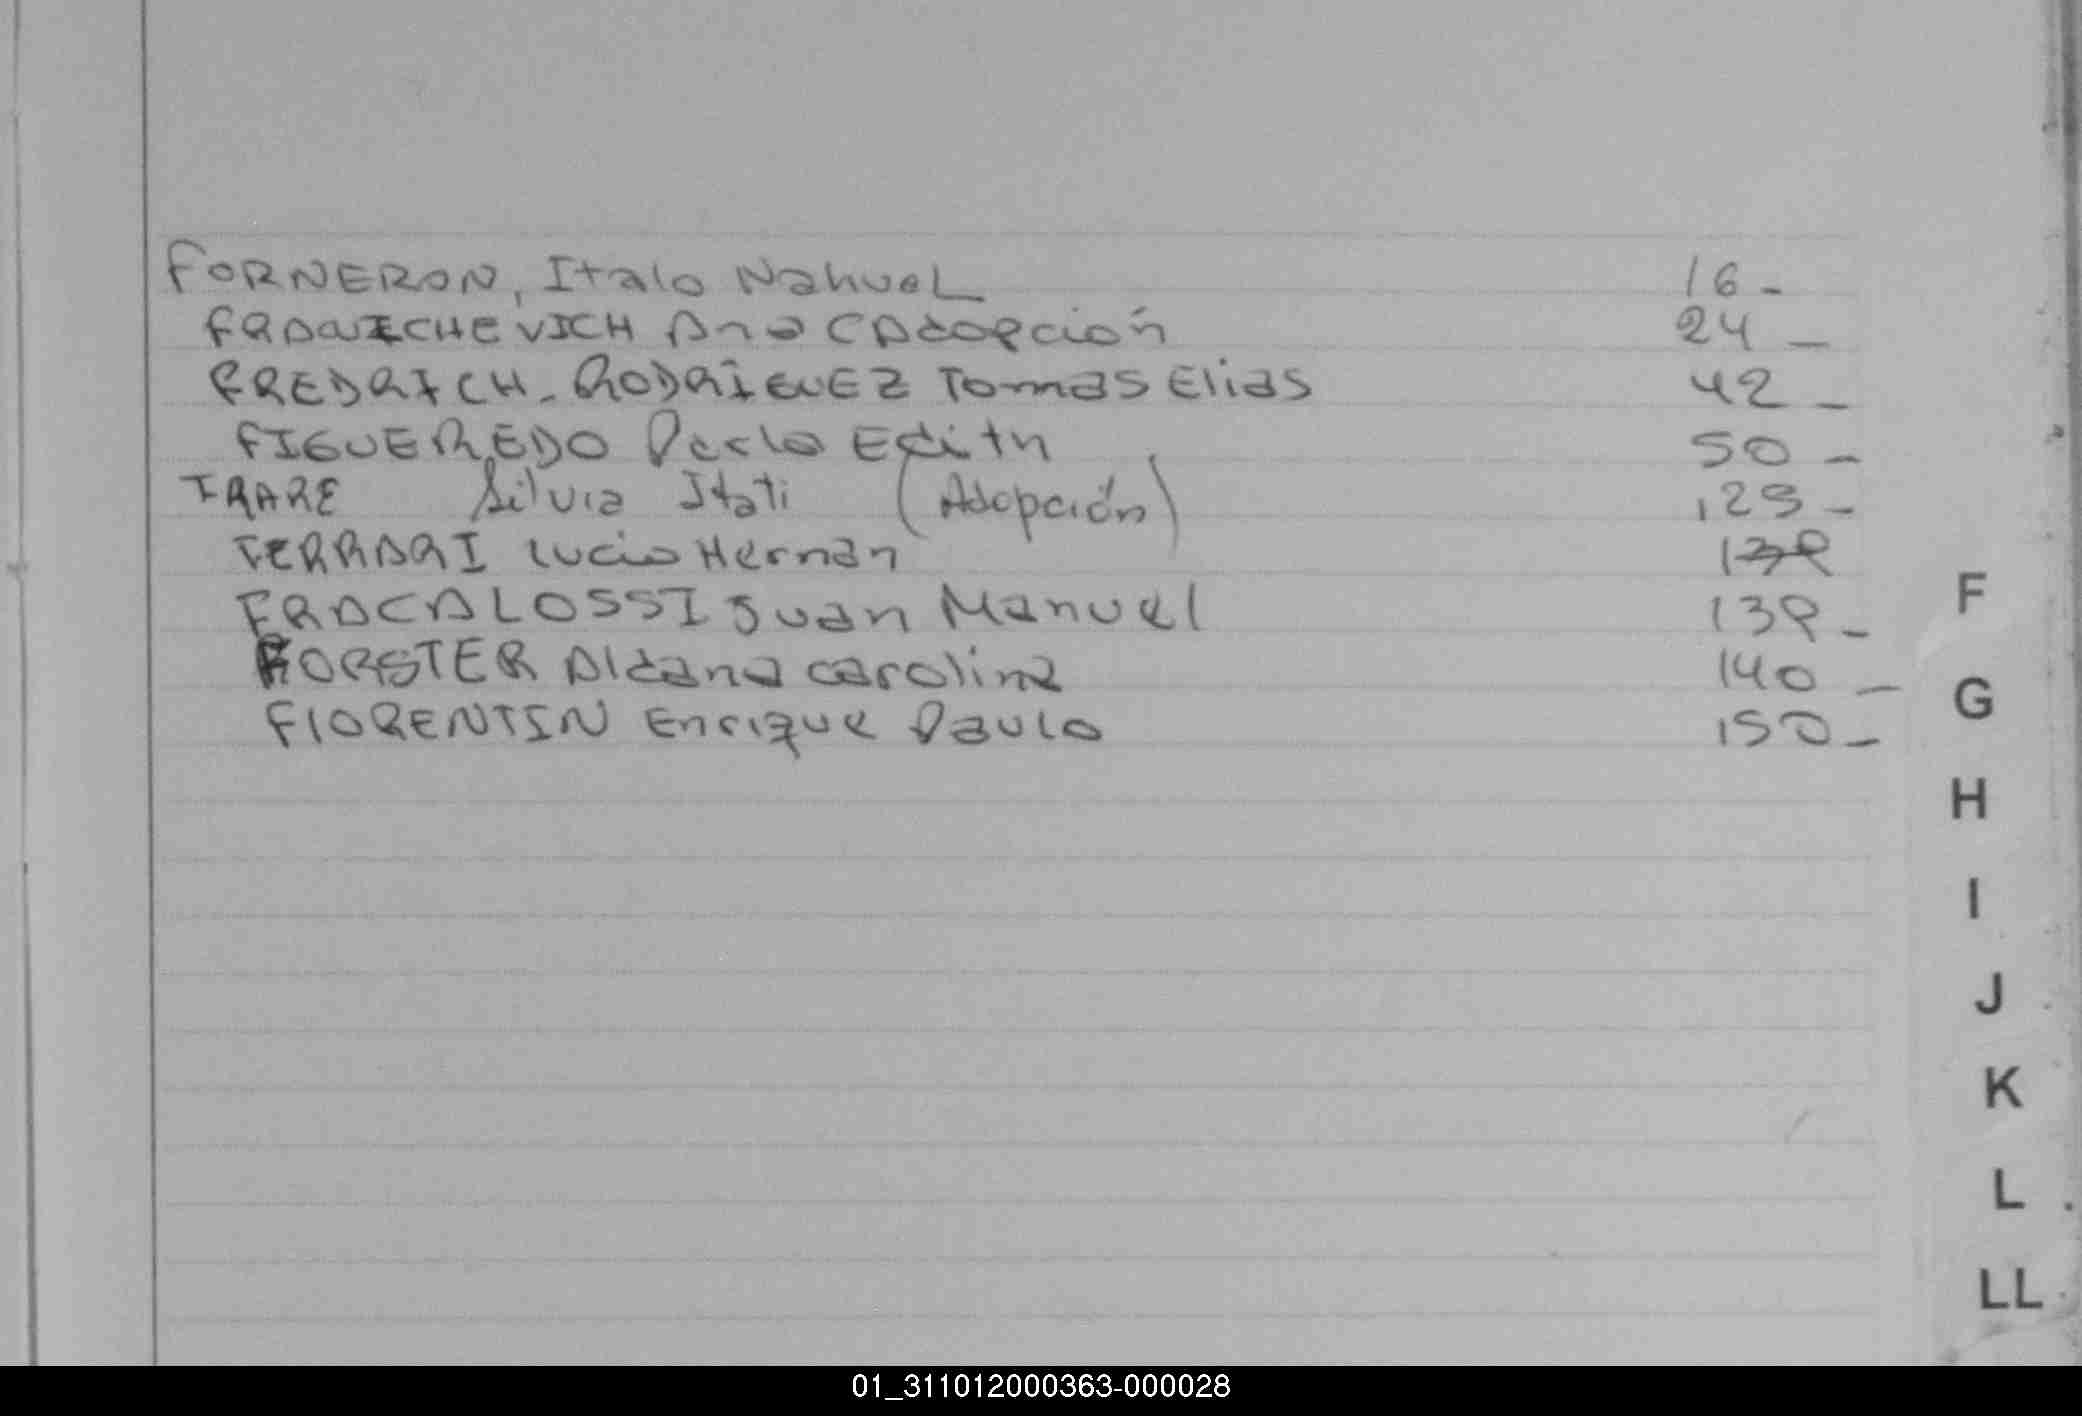 FORNERON, Italo Nahuel 16 -
FRANICHEVICH Ana (Adopción 24 -
FREDRICH - RODRIGUEZ Tomas Elias 42 -
FIGUEREDO Perla Edith 50 -
FRARE Silvia Itati (Adopción) 129 -
FERRARI Lucio Hernan
FRACALOSSI Juan Manuel 139 -
FORSTER Aldana Carolina 140 -
FIORENTIN Enrique Paulo 150 -
F
G
H
I
J
K
L
LL
01_311012000363-000028